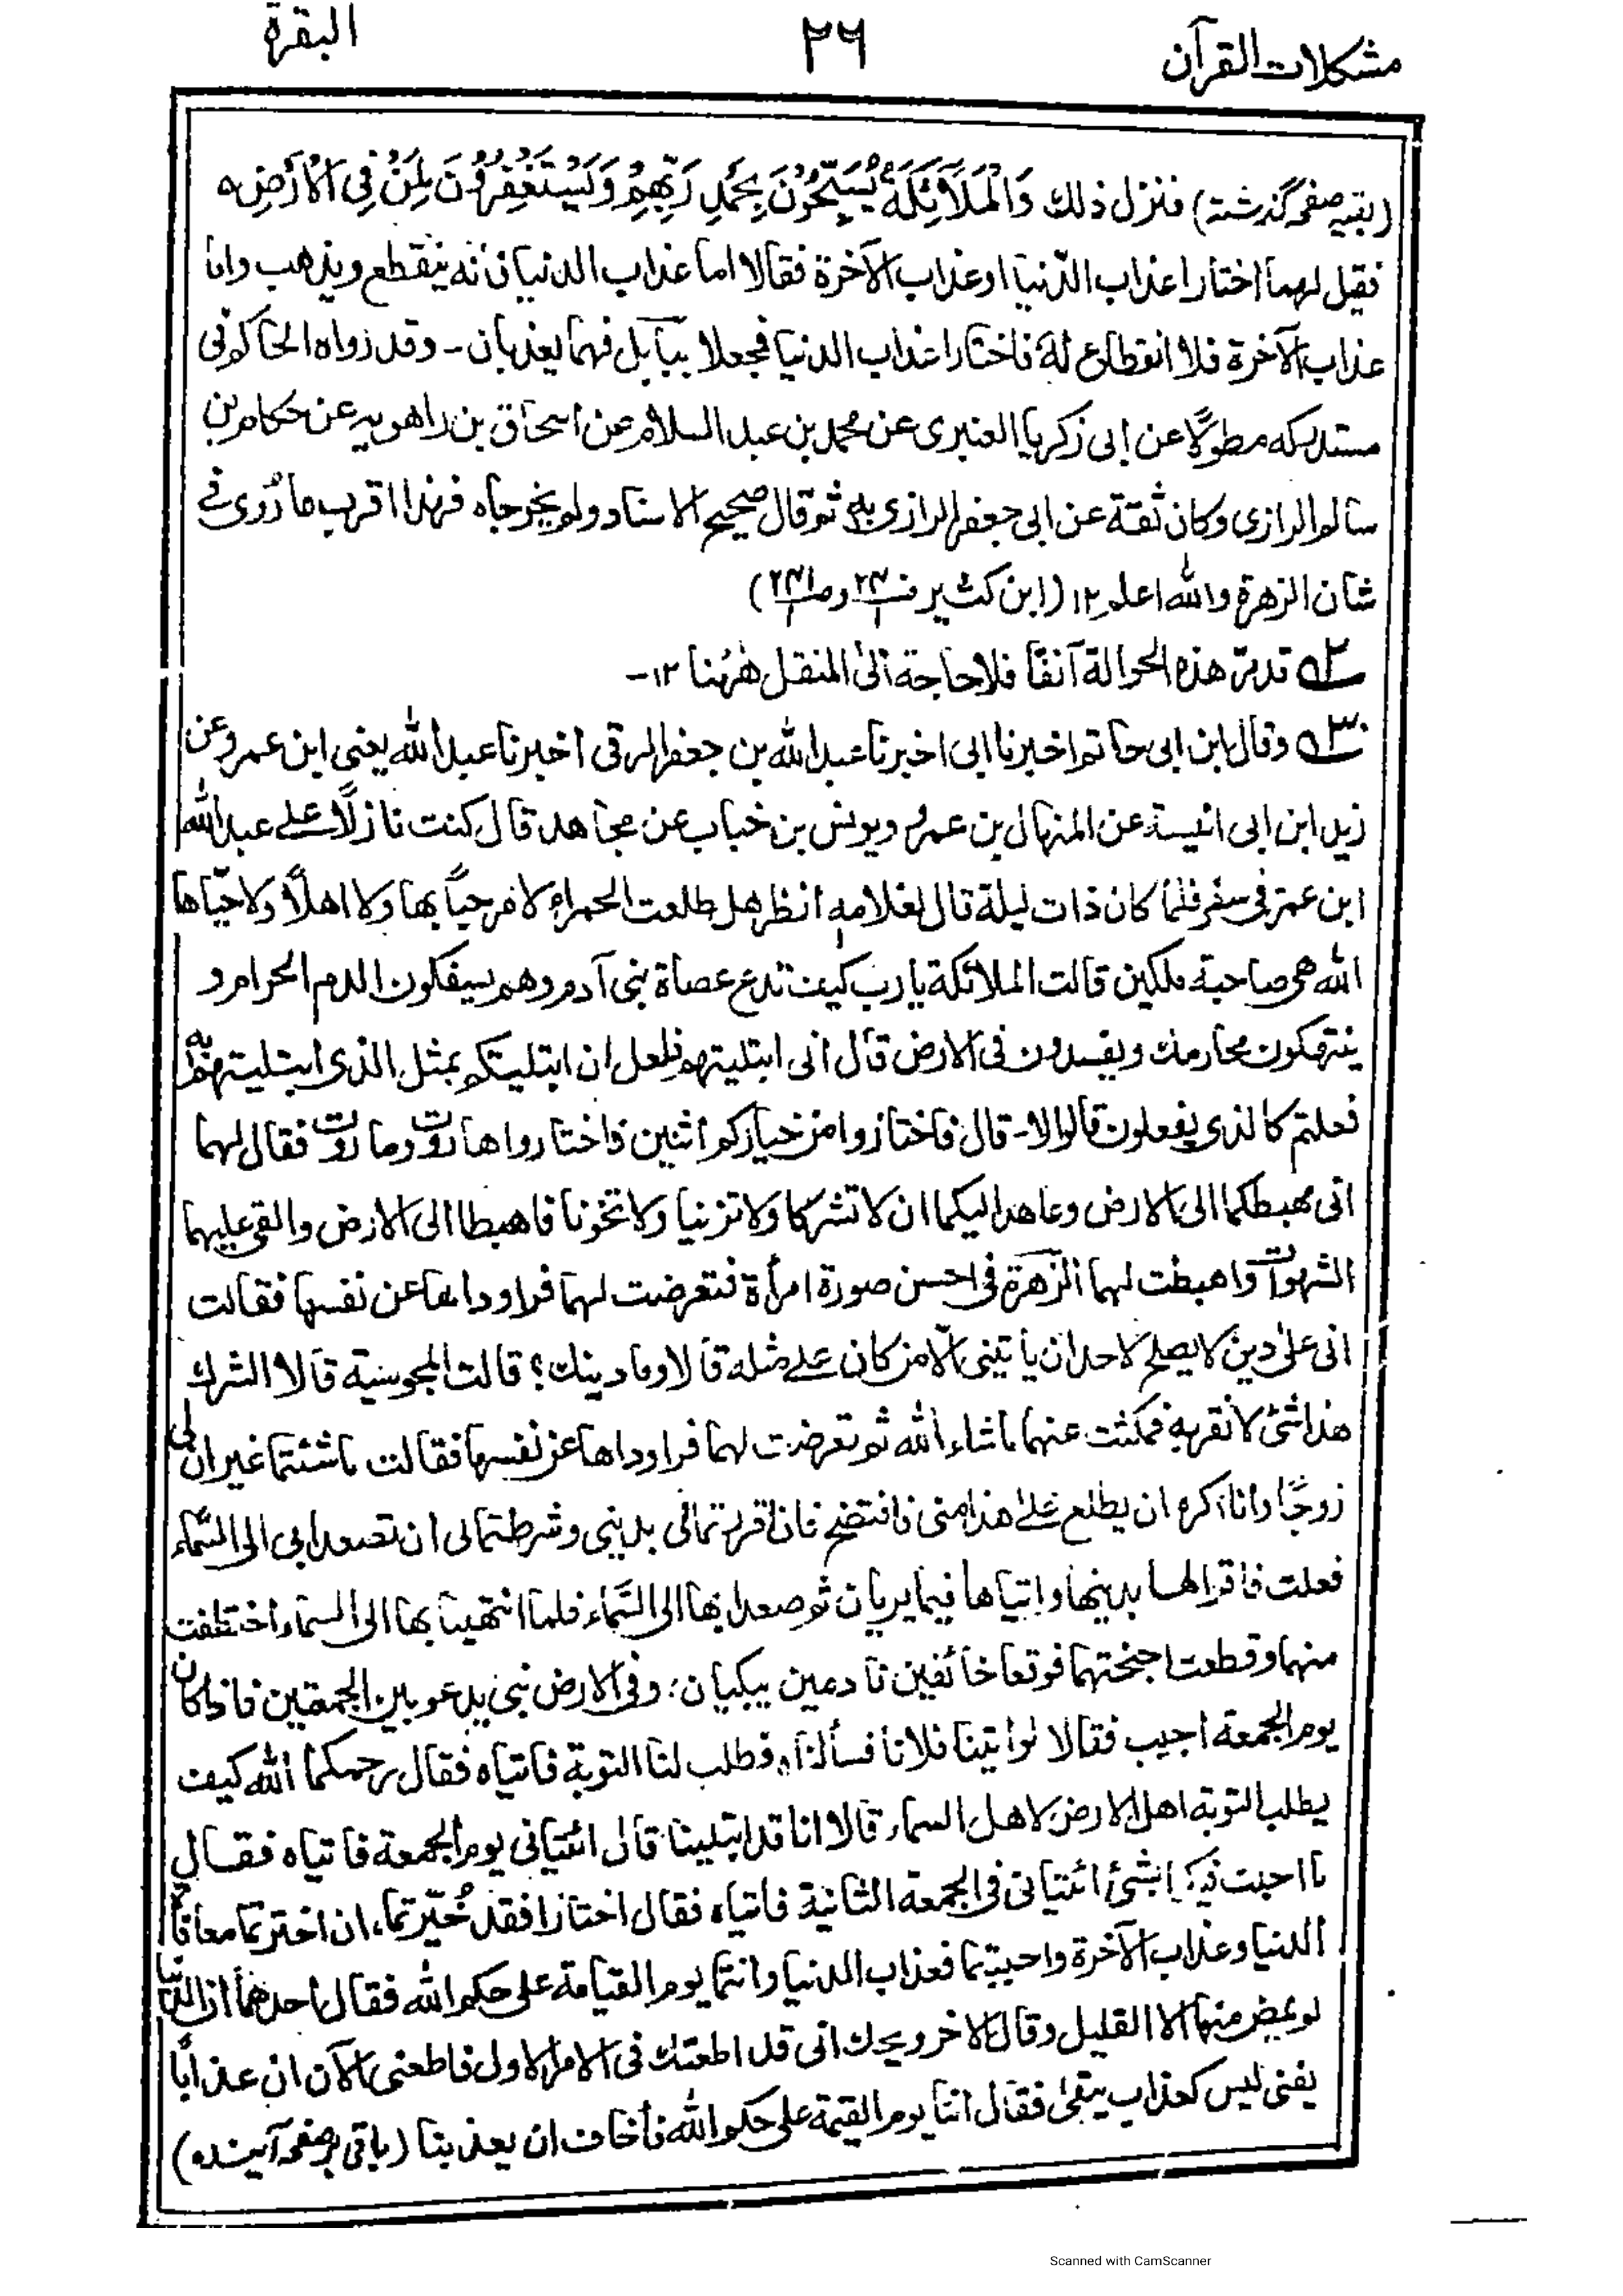 مشكلات القرآن
٢٦
البقرة
(بقيه صفحه گذشته) فنزل ذلك وَالْمَلَآئِكَةُ يُسَبِّحُوْنَ بِحَمْدِ رَبِّهِمْ وَيَسْتَغْفِرُوْنَ لِمَنْ فِي الْاَرْضِ ه
فقيل لهما اختارا عذاب الدّنيا او عذاب الآخرة فقالا اما عذاب الدنيا فانه ينقطع ويذهب واما
عذاب الآخرة فلا انقطاع له فاختارا عذاب الدنيا فجعلا ببابل فهما يعذبان - وقد رواه الحاكم فى
مستدركه مطولًا عن ابى زكريا العنبرى عن محمد بن عبد السلام عن اسحاق بن راهويه عن حكام بن
سالم الرازى وكان ثقة عن ابى جعفر الرازى به ثم قال صحيح الاسناد ولم يخرجاه فهذا اقرب ما رُوى فى
شان الزهرة والله اعلم ١٢ (ابن كثير
٢ه قد مرّ هذه الحوالة آنفًا فلا حاجة الىٰ المنقل هٰهُنا ١٢-
٣ه وقال ابن ابى حاتم اخبرنا ابى اخبرنا عبد الله بن جعفر الرقى اخبرنا عبد الله يعنى ابن عمرو عن
زيد ابن ابى انيسة عن المنهال بن عمرو ويونس بن خباب عن مجاهد قال كنت نازلًا على عبد الله
ابن عمر فى سفر فلما كان ذات ليلة قال لغلامه انظر هل طلعت الحمراء لا مرحبًا بها ولا اهلًا ولا حيّاها
الله هى صاحبة ملكين قالت الملائكة يا رب كيف تدع عصاة بنى آدم وهم يسفكون الدم الحرام و
ينتهكون محارمك ويفسدون فى الارض قال انى ابتليتهم فلعل ان ابتليتكم بمثل الذى ابتليتهم به
فعلتم كالذى يفعلون قالوا لا - قال فاختاروا من خياركم اثنين فاختاروا هاروت وماروت فقال لهما
انى مهبطكما الى الارض وعاهد اليكما ان لا تشركا ولا تزنيا ولا تخونا فاهبطا الى الارض والقى عليهما
الشهوات واهبطت لهما الزهرة فى احسن صورة امرأة فتعرضت لهما فراوداها عن نفسها فقالت
انى علىٰ دين لا يصلح لاحد ان يأتينى الّا من كان على مثله قالا وما دينك؟ قالت المجوسية قالا الشرك
هذا شئ لا نقربه فمكثت عنهما ما شاء الله ثم تعرضت لهما فراوداها عن نفسها فقالت ما شئتما غير ان لى
زوجًا وانا اكره ان يطلع على هذا منى فافتضح فان اقررتمالى بدينى وشرطتمالى ان تصعدا بى الى السّماء
فعلت فاقرا لها بدينها واتياها فيما يريان ثم صعدا بها الى السّماء فلما انتهيا بها الى السماء اختطفت
منهما وقطعت اجنحتهما فوقعا خائفين نادمين يبكيان، وفى الارض نبى يدعو بين الجمعتين فاذا كان
يوم الجمعة اجيب فقالا لو اتينا فلانا فسألناه فطلب لنا التوبة فاتياه فقال رحمكما الله كيف
يطلب التوبة اهل الارض لاهل السماء قالا انا قد ابتلينا قال ائتيانى يوم الجمعة فاتياه فقال
ما اجبت فيكما بشئ ائتيانى فى الجمعة الثانية فاتياه فقال اختارا فقد خُيّرتما، ان اخترتما معافاة
الدنيا وعذاب الآخرة واحببتما فعذاب الدنيا وانتما يوم القيامة على حكم الله فقال احدهما ان الدنيا
لم يمض منها الا القليل وقال الاخر ويحك انى قد اطعتك فى الامر الاول فاطعنى الآن ان عذابًا
يفنى ليس كعذاب يبقىٰ فقال اننا يوم القيمة على حكم الله فأخاف ان يعذبنا (باقى بر صفحه آيينده)
Scanned with CamScanner